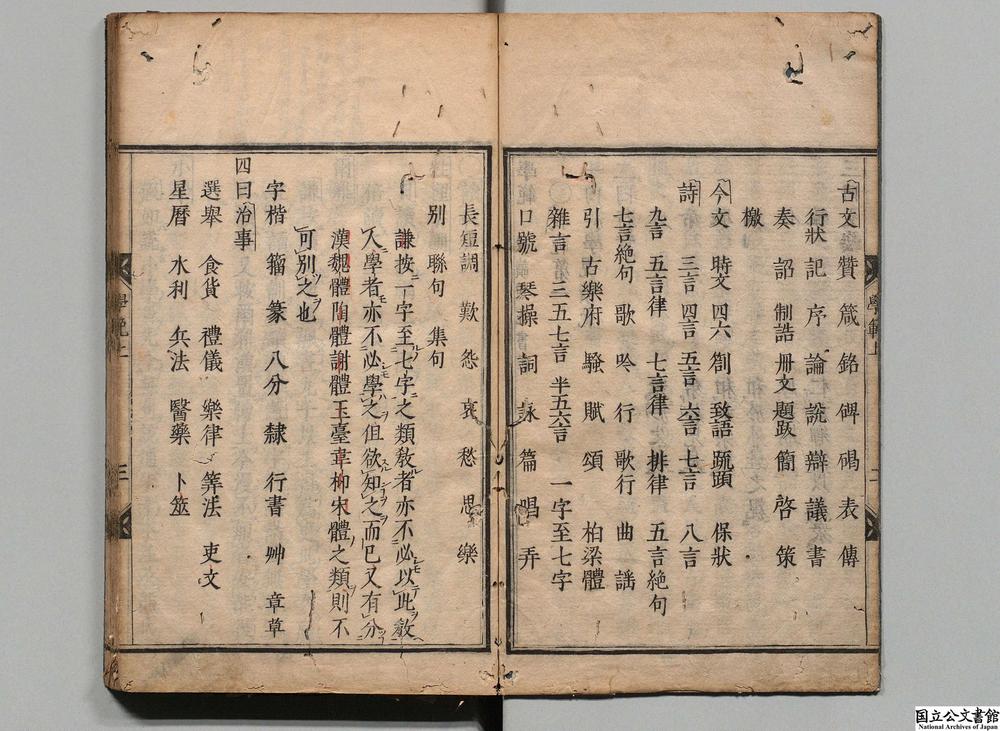 古文 贊 箴 銘 碑 碣 表 傳
行狀 記 序 論 說 辯 議 書
奏 詔 制誥 冊文 題跋 簡 啓 策
檄
今文 時文 四六 劄 致語 䟽頭 保狀
詩 三言 四言 五言 六言 七言 八言
九言 五言律 七言律 排律 五言絶句
七言絶句 歌 吟 行 歌行 曲 謡
引 古樂府 騷 賦 頌 柏梁體
雜言 三五七言 半五六言 一字至七字
口號 琴操 詞 詠 篇 唱 弄
長短調 歎 怨 哀 愁 思 樂
别 聯句 集句
謙按一丁字至七字之類敎者亦不必以此敎
人學者亦不必學之但欲知之而已又有分
漢魏體陶體謝體玉臺韋柳宋體之類則不
可别之也
字 楷 籀 篆 八分 隸 行書 艸 章草
四曰治事
選舉 食貨 禮儀 樂律 筭法 吏文
星曆 水利 兵法 醫藥 卜筮
學範上
二
三
国立公文書館
National Archives of Japan